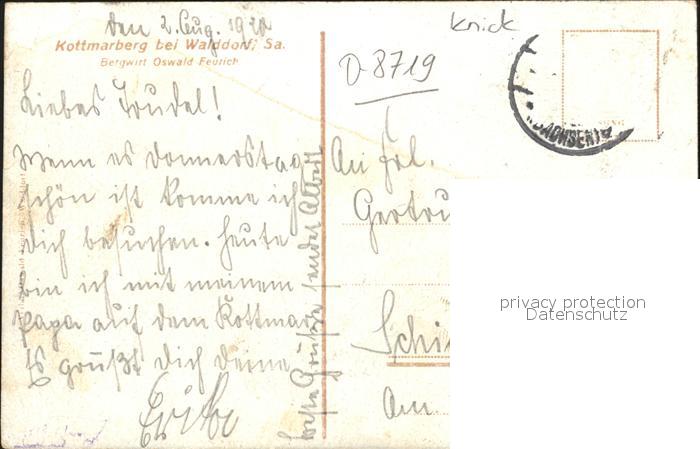 den 2. Aug. 1920
Kottmarberg bei Walddorf, Sa.
Bergwirt Oswald Feurich
Liebes Trudel!
Wenn es Donnerstag
schön ist komme ich
dich besuchen. Heute
bin ich mit meinem
Papa auf dem Kottmar
Es grüßt Dich deine
beste Grüße sendet Albert
Knick
D-8719
An Frl.
Gertru
Schi
Am
SACHSEN
privacy protection
Datenschutz